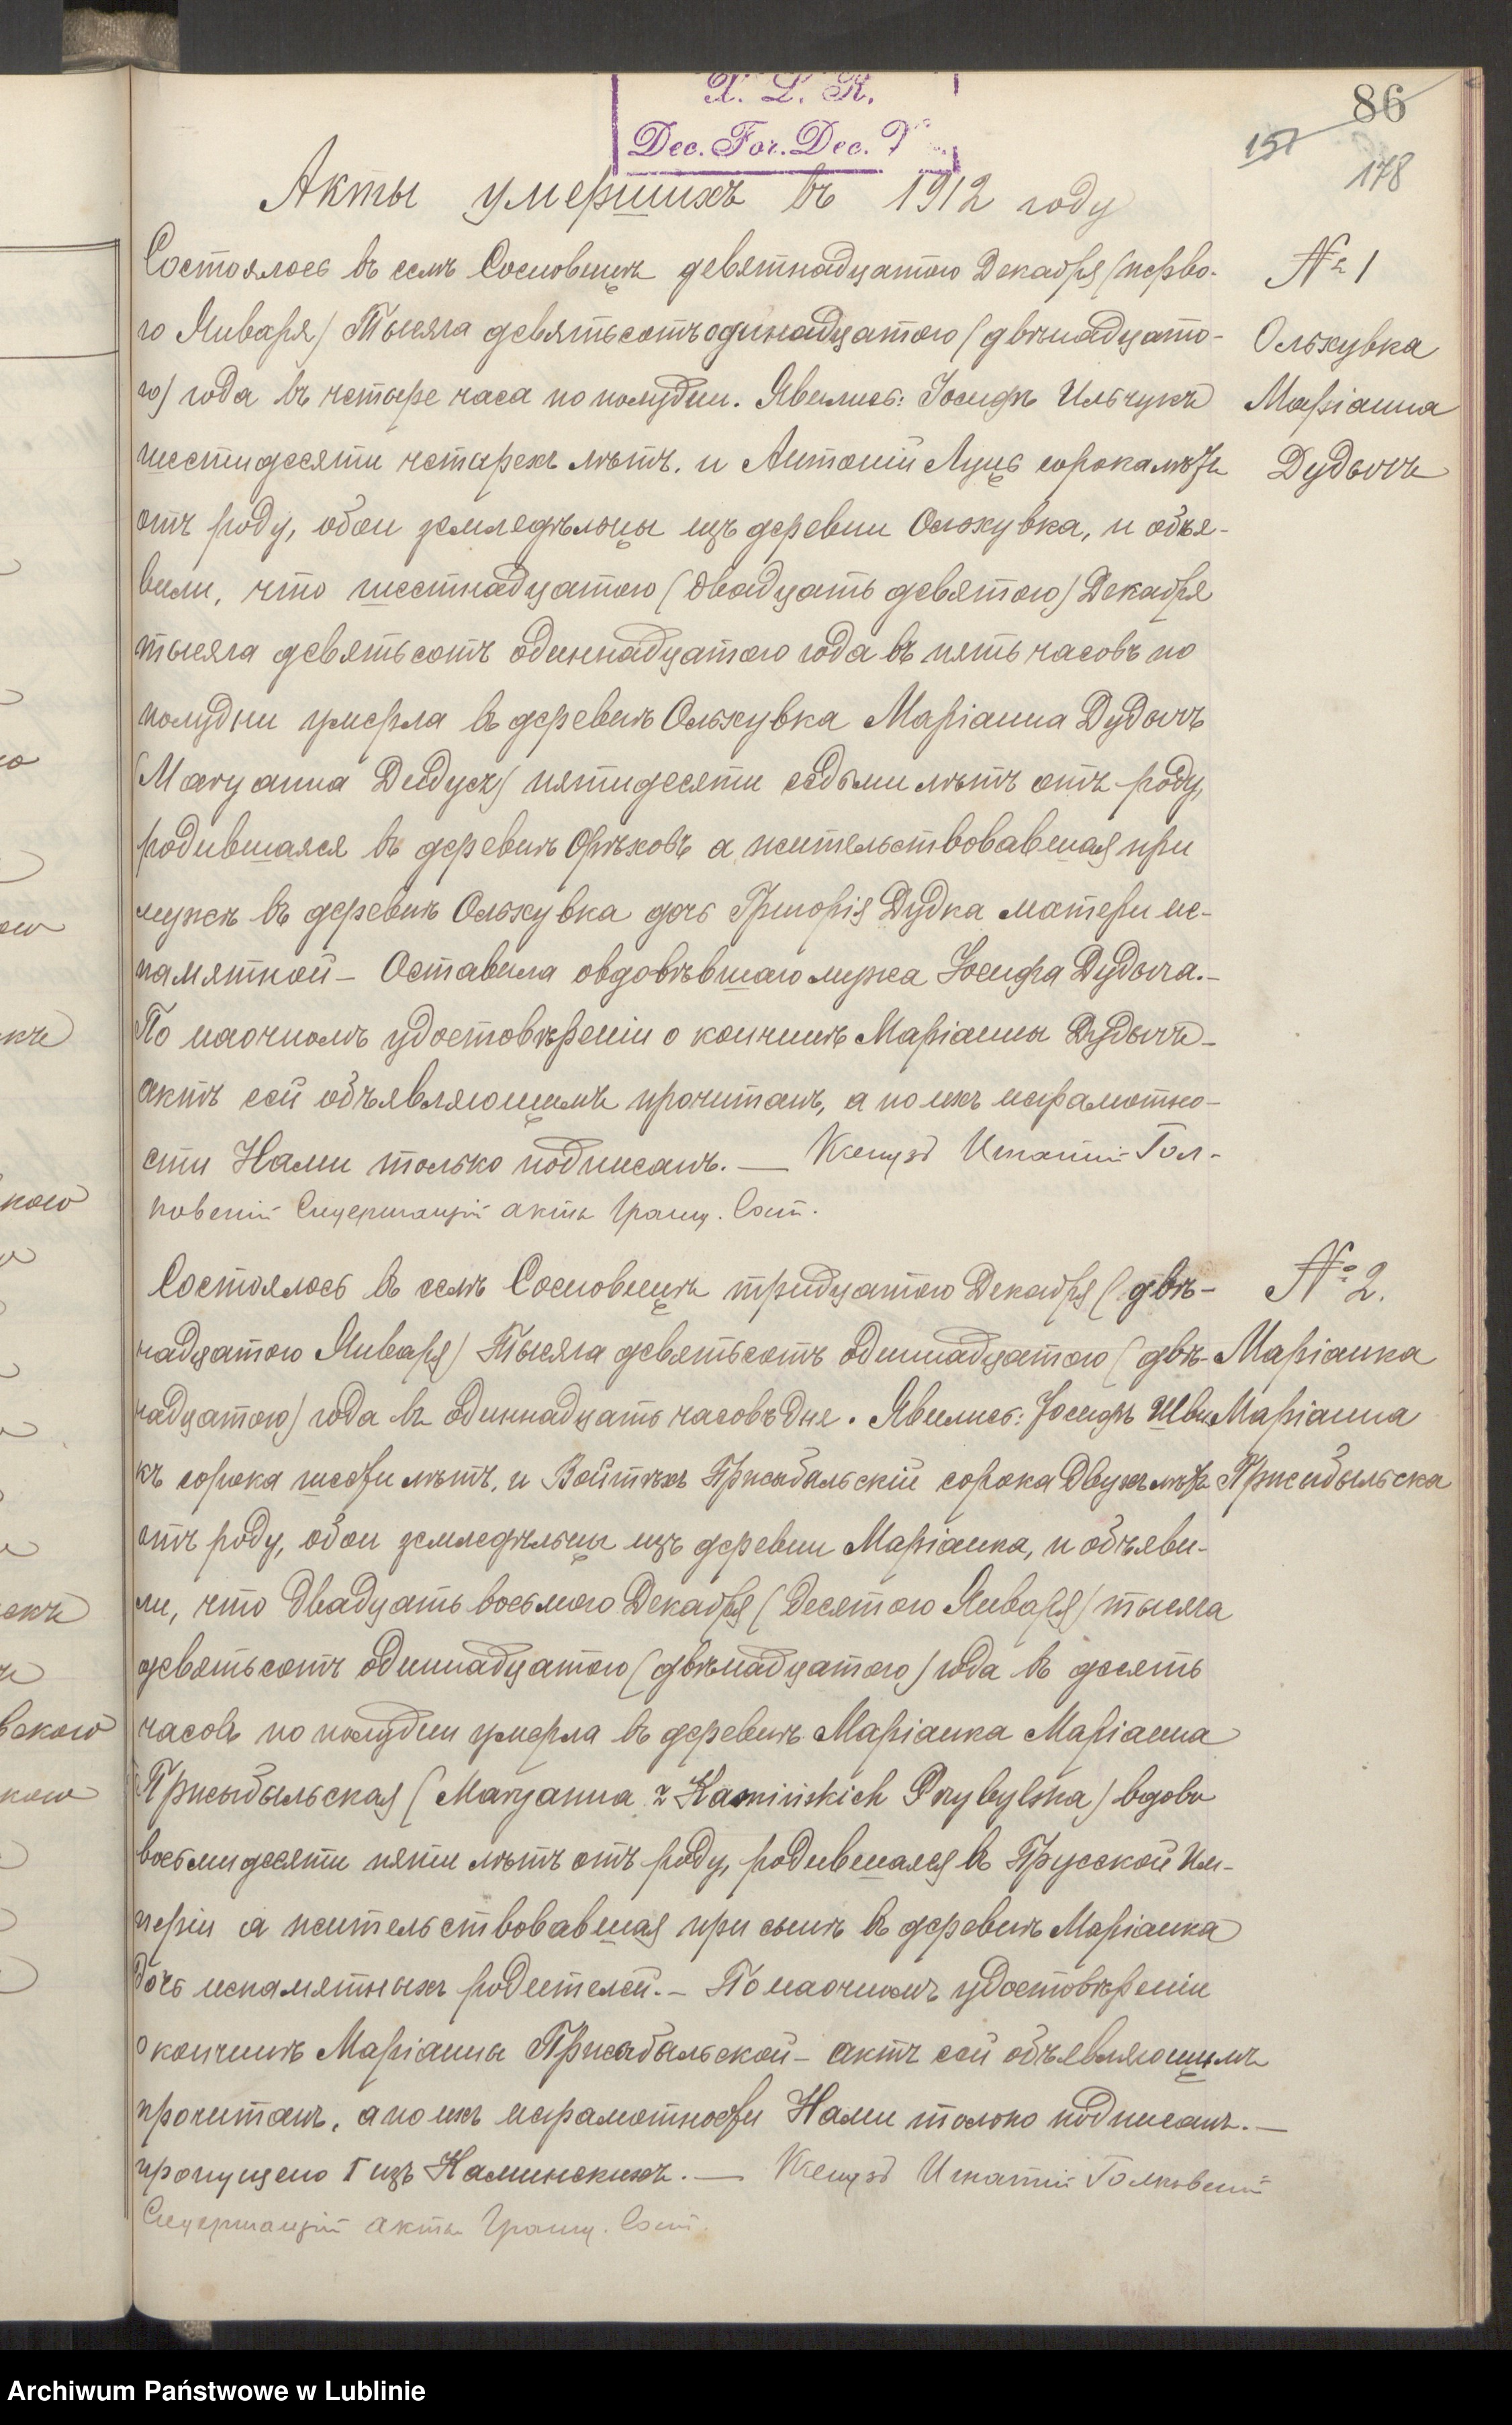 X. L. R.
Dec. For. Dec.
86
157
178
Акты умершихъ въ 1912 году
№ 1
Ольхувка
Маріанна
Дудычъ
Состоялось въ селѣ Сосновицѣ девятнадцатого Декабря (перво-
го Января) Тысяча девятьсотъ одинадцатого (двѣнадцато-
го) года въ четыре часа по полудни. Явились: Іосифъ Ильчукъ
шестидесяти четырехъ лѣтъ, и Антоній Луць сорока лѣтъ
отъ роду, обои земледѣльцы изъ деревни Ольхувка, и объя-
вили, что шестнадцатого (двадцать девятого) Декабря
тысяча девятьсотъ одиннадцатого года въ пять часовъ по
полудни умерла въ деревнѣ Ольхувка Маріанна Дудычъ
(Maryanna Dudycz) пятидесяти седьми лѣтъ отъ роду,
родившаяся въ деревнѣ Орѣховъ а жительствовавшая при
мужѣ въ деревнѣ Ольхувка дочь Григорія Дудка матери не-
памятной – Оставила овдовѣвшаго мужа Іосифа Дудыча. –
По наочномъ удостовѣреніи о кончинѣ Маріанны Дудычъ –
актъ сей объявляющимъ прочитанъ, а по ихъ неграмотно-
сти Нами только подписанъ. — Ксендзъ Игнатій Гол-
ковскій Содержащій акты Гражд. Сост.
№ 2.
Маріанка
Маріанна
Пржибыльска
Состоялось въ селѣ Сосновицѣ тридцатого Декабря (двѣ-
надцатого Января) Тысяча девятьсотъ одиннадцатого (двѣ-
надцатого) года въ одиннадцать часовъ дня. Явились: Іосифъ Шви
къ сорока шести лѣтъ, и Войтѣхъ Пржибыльскій сорока двухъ лѣтъ
отъ роду, обои земледѣльцы изъ деревни Маріанка, и объяви-
ли, что двадцать восьмого Декабря (десятого Января) тысяча
девятьсотъ одиннадцатого (двѣнадцатого) года въ десять
часовъ по полудни умерла въ деревнѣ Маріанка Маріанна
Пржыбыльская (Maryanna z Kamińskich Przybylska) вдова
восьмидесяти пяти лѣтъ отъ роду, родившаяся въ Прусской Им-
періи а жительствовавшая при сынѣ въ деревнѣ Маріанка
дочь непамятныхъ родителей. – По наочномъ удостовѣреніи
о кончинѣ Маріанны Пржибыльской – актъ сей объявляющимъ
прочитанъ, а по ихъ неграмотности Нами только подписанъ. —
пропущено Г изъ Каминскихъ. — Ксендзъ Игнатій Голковскій
Содержащій акты Гражд. Сост.
Archiwum Państwowe w Lublinie